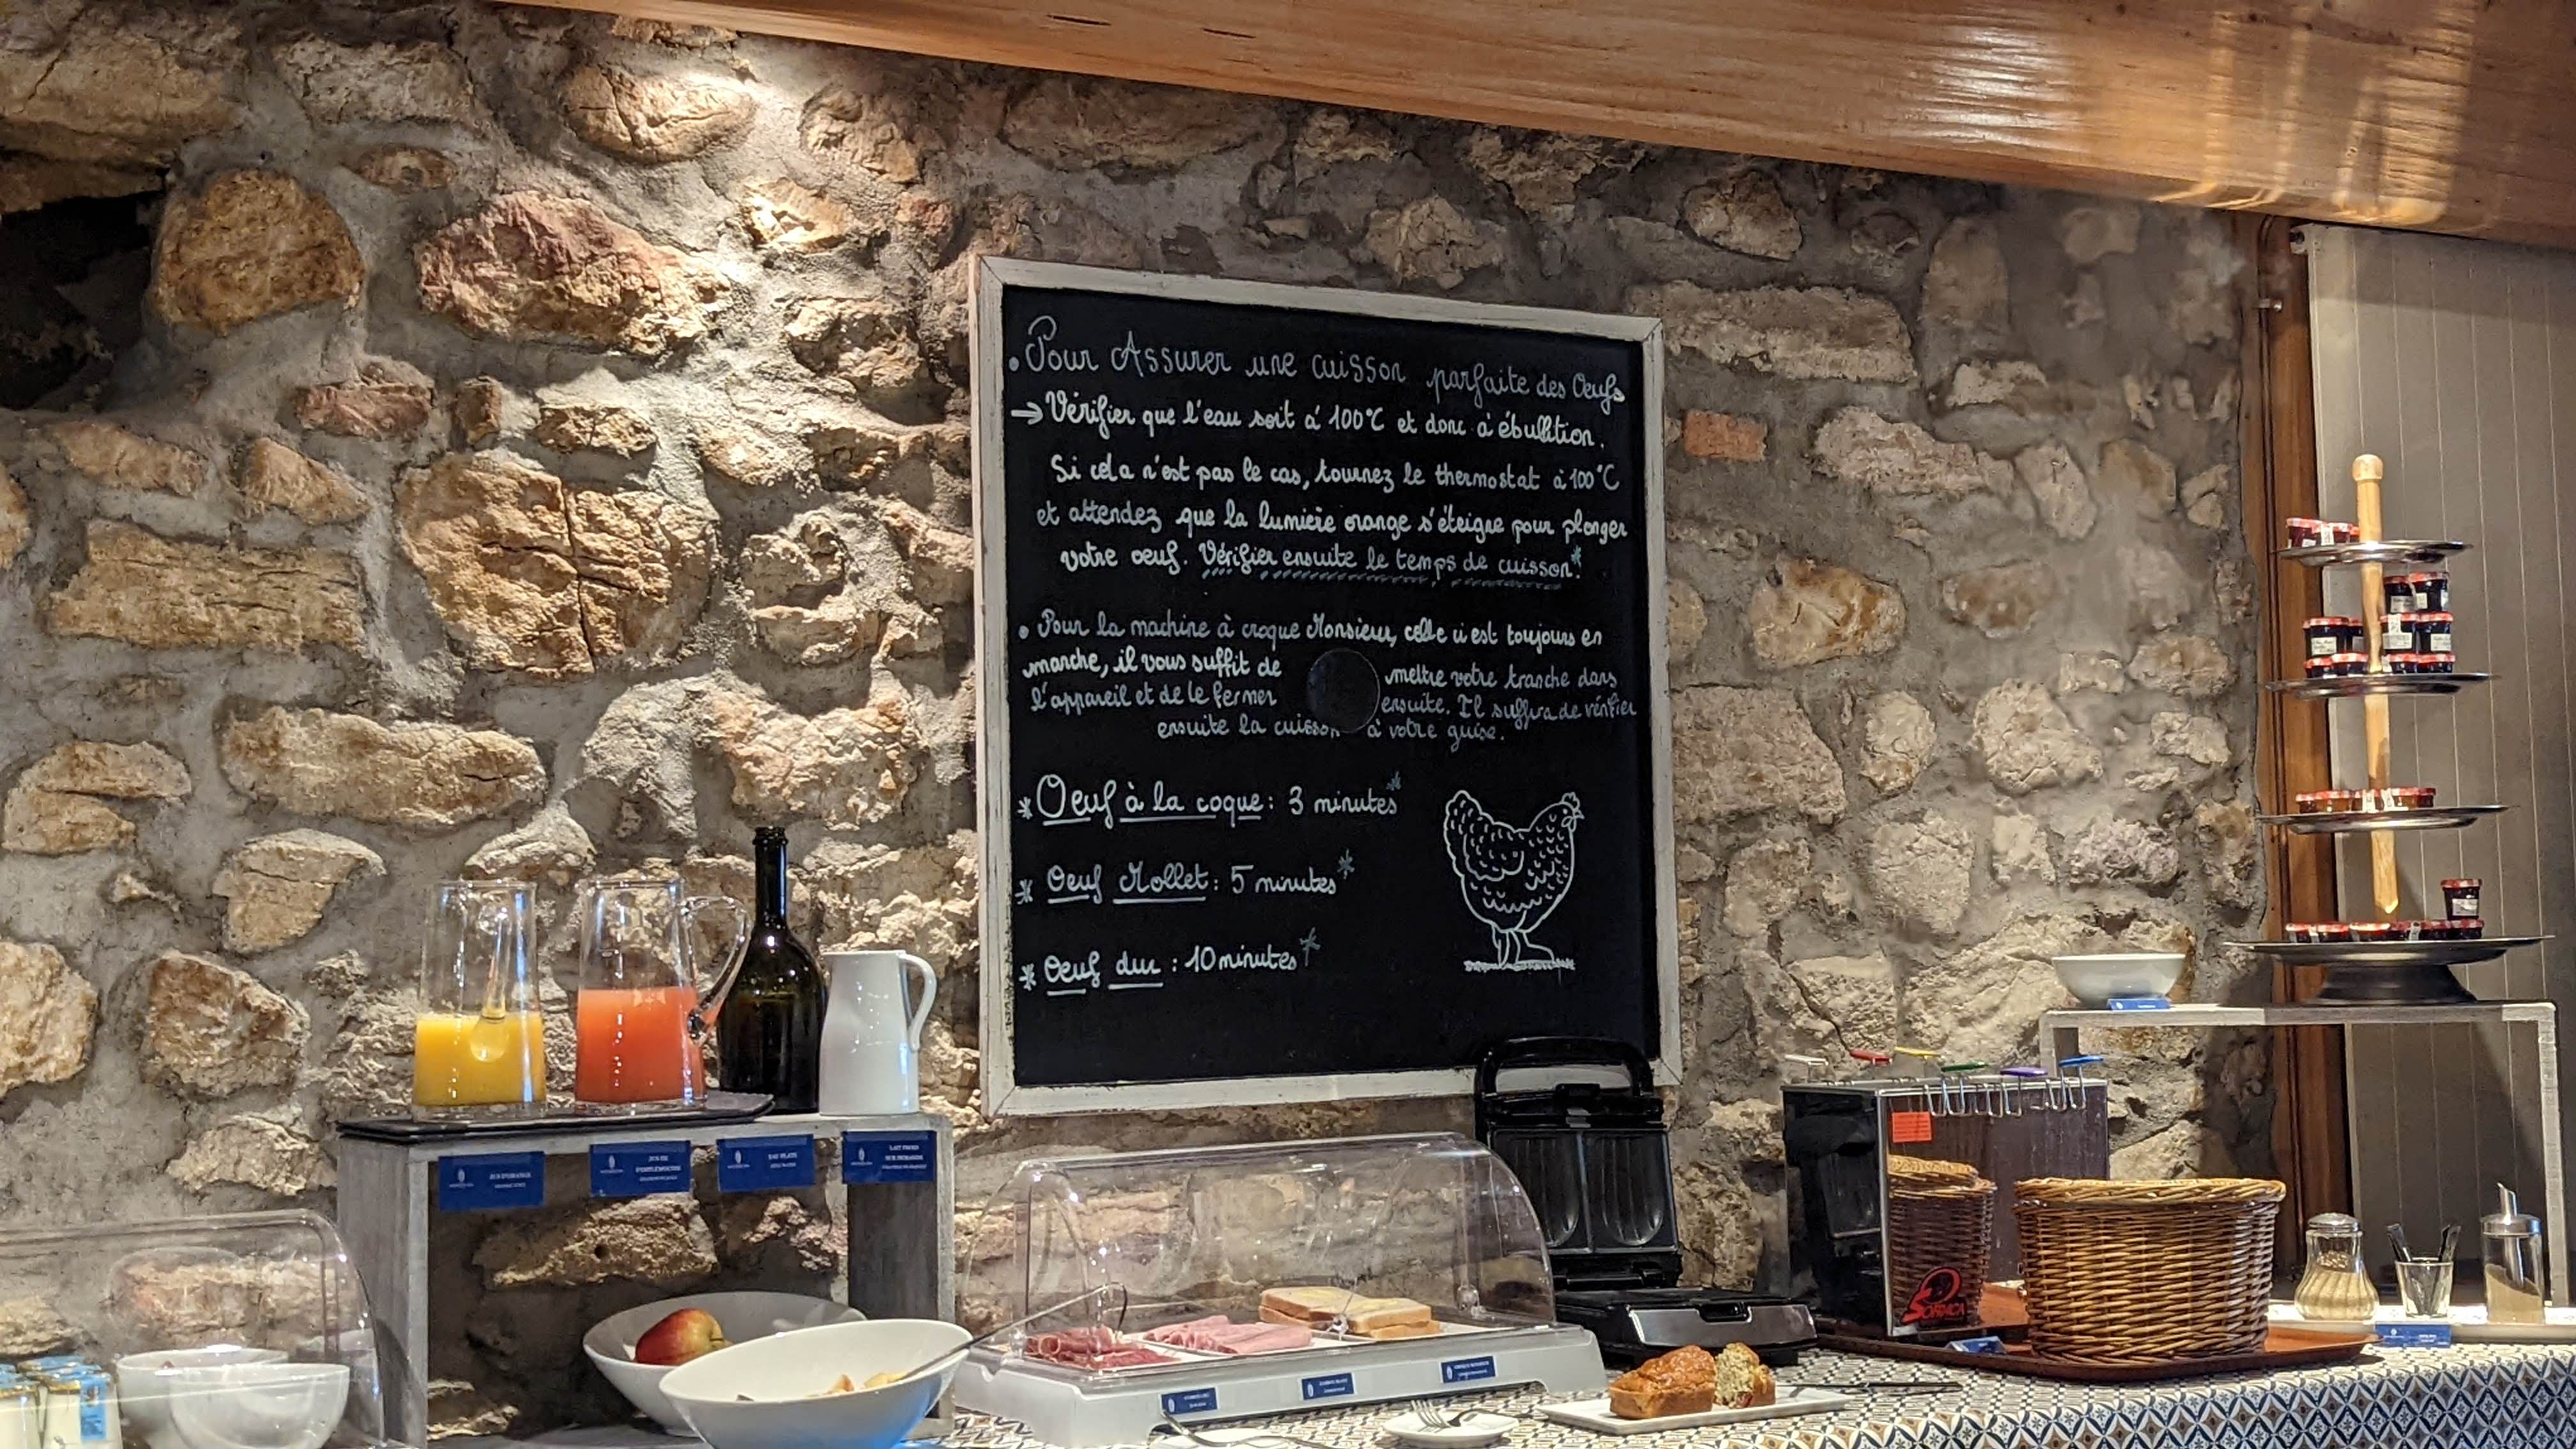 . Pour Assurer une cuisson parfaite des Oeufs
→ Vérifier que l'eau soit à 100°C et donc à ébullition.
Si cela n'est pas le cas, tournez le thermostat à 100°C
et attendez que la lumière orange s'éteigne pour plonger
votre oeuf. Vérifier ensuite le temps de cuisson*.
. Pour la machine à croque Monsieur, celle ci est toujours en
marche, il vous suffit de mettre votre tranche dans
l'appareil et de le fermer ensuite. Il suffira de vérifier
ensuite la cuisson à votre guise.
* Oeuf à la coque : 3 minutes*
* Oeuf Mollet : 5 minutes*
* Oeuf dur : 10 minutes*
JUS D'ORANGE
JUS DE
PAMPLEMOUSSE
EAU PLATE
LAIT FROID
SUR DEMANDE
SOFRACA